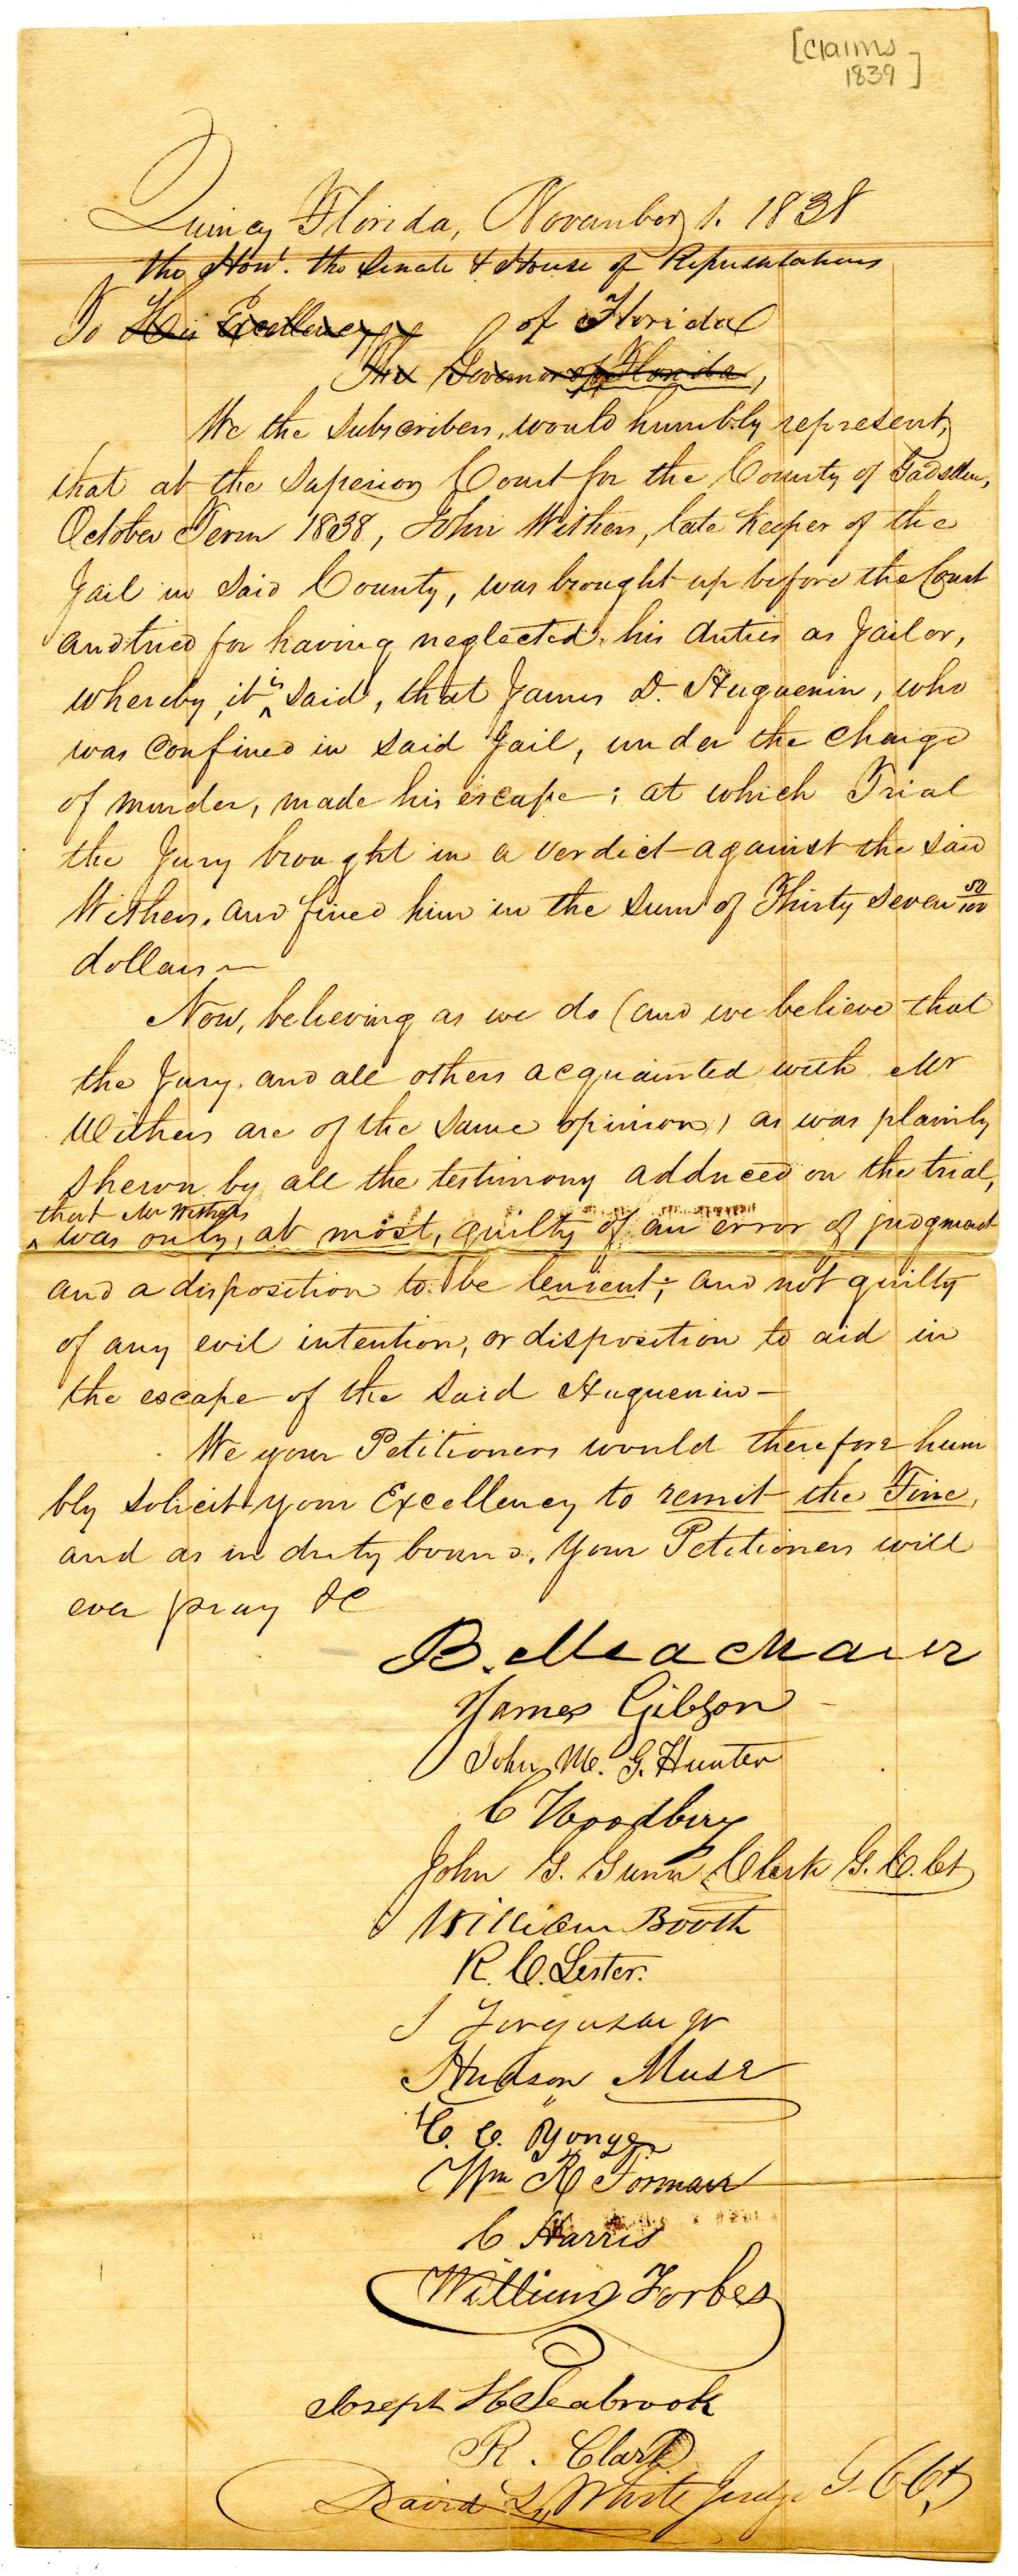 [Claims
1839]
Quincy Florida, November 1. 1838
the Hon. the Senate & House of Representatives
To His Excellency of Florida
The Governor of Florida,
We the subscribers, would humbly represent,
that at the Superior Court for the County of Gadsden,
October Term 1838, John Withers, late keeper of the
Jail in said County, was brought up before the Court
and tried for having neglected his duties as Jailor,
whereby, it is said, that James D. Huguenin, who
was confined in said Jail, under the charge
of murder, made his escape; at which Trial
the Jury brought in a verdict against the said
Withers, and fined him in the sum of Thirty seven 50/100
dollars —
Now, believing as we do (and we believe that
the Jury, and all others acquainted with Mr
Withers are of the same opinion) as was plainly
shewn by all the testimony adduced on the trial,
that Mr Withers
was only, at most, guilty of an error of judgment
and a disposition to be lenient; and not guilty
of any evil intention, or disposition to aid in
the escape of the said Huguenin —
We your Petitioners would therefore hum
bly solicit your Excellency to remit the Fine,
and as in duty bound, your Petitioners will
ever pray &c
B. Meacham
James Gibson
John M. G. Hunter
C Woodbery
John G. Gunn Clerk G. C. Ct
William Booth
R. C. Lester.
J Ferguson Jr
Hudson Muse
C. C. Yonge
Wm R Forman
C Harris
William Forbes
Joseph H Seabrook
R. Clark
David L. White Judge G C Ct